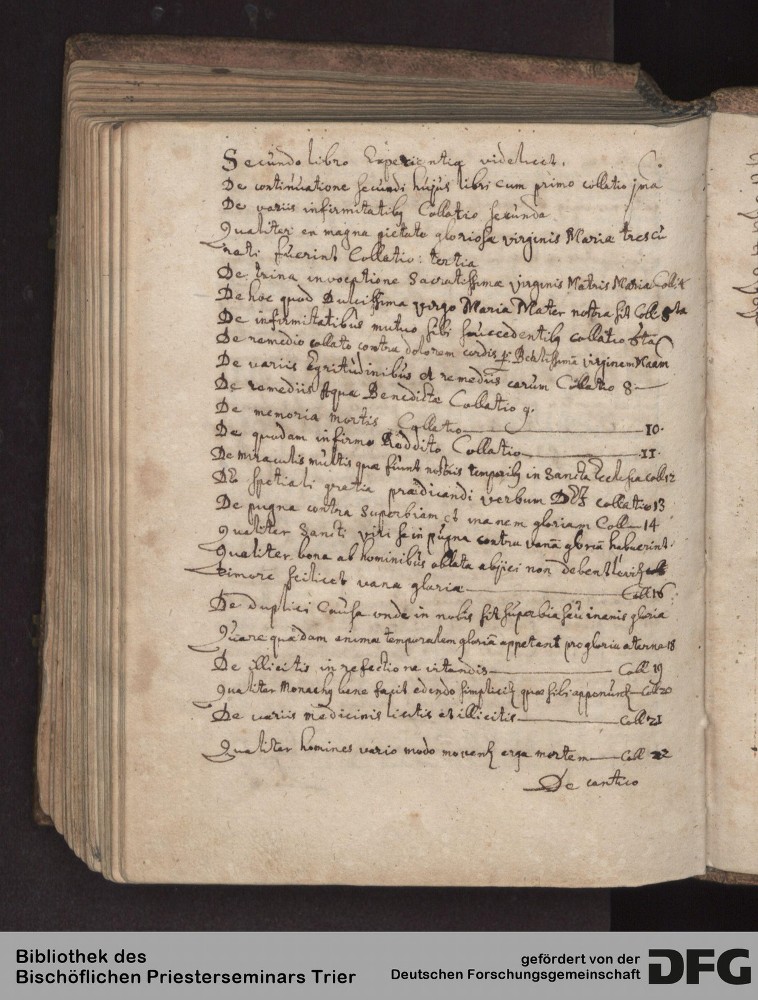 Secundo libro Experientiæ videlicet.
De continuatione secundi hujus libri cum primo collatio jma
De variis infirmitatibq Collatio secunda
Qualiter in magna pietate gloriosæ virginis Mariæ tres cu
rati fuerint Collatio: tertia
De trina invocptione Sacratissimæ virginis Matris Mariæ Coll: 4
De hoc quod Dulcissima virgo Maria Mater nostra sit Coll 5ta
De infirmitatibus mutuo sibi succedentibq collatio 6ta
De remedio collato contra dolorem cordis p Beatissimã virginem Mariam
De variis Egritudinibus et remediis earum Collatio 8
De remediis Aquæ Benedictæ Collatio 9.
De memoria mortis Collatio 10.
De quodam infirmo Reddito Collatio 11.
De miraculis multis quæ fiunt nostris temporibq in Sancta Ecclesia coll 12
De spetiali gratia prædicandi verbum DEI collatio 13
De pugna contra Superbiam et inanem gloriam Coll 14
Qualiter Sancti viri se in pugna contra vanã gloriã habuerint.
Qualiter bona ab hominibus oblata abjici non debent
timore scilicet vanæ gloriæ Coll 16.
De duplici Causa unde in nobis sit superbia seu inanis gloria
Quare quædam animæ temporalem gloriã appetant pro gloria æterna 18
De illicitis in refectione vitandis Coll 19
Qualiter Monachq bene facit edendo simplicitr quæ sibi apponuntr Coll 20
De variis medicinis licitis et illicitis Coll 21
Qualiter homines vario modo moventr erga mortem Coll 22
De cantico
Bibliothek des
Bischöflichen Priesterseminars Trier
gefördert von der
Deutschen Forschungsgemeinschaft
DFG